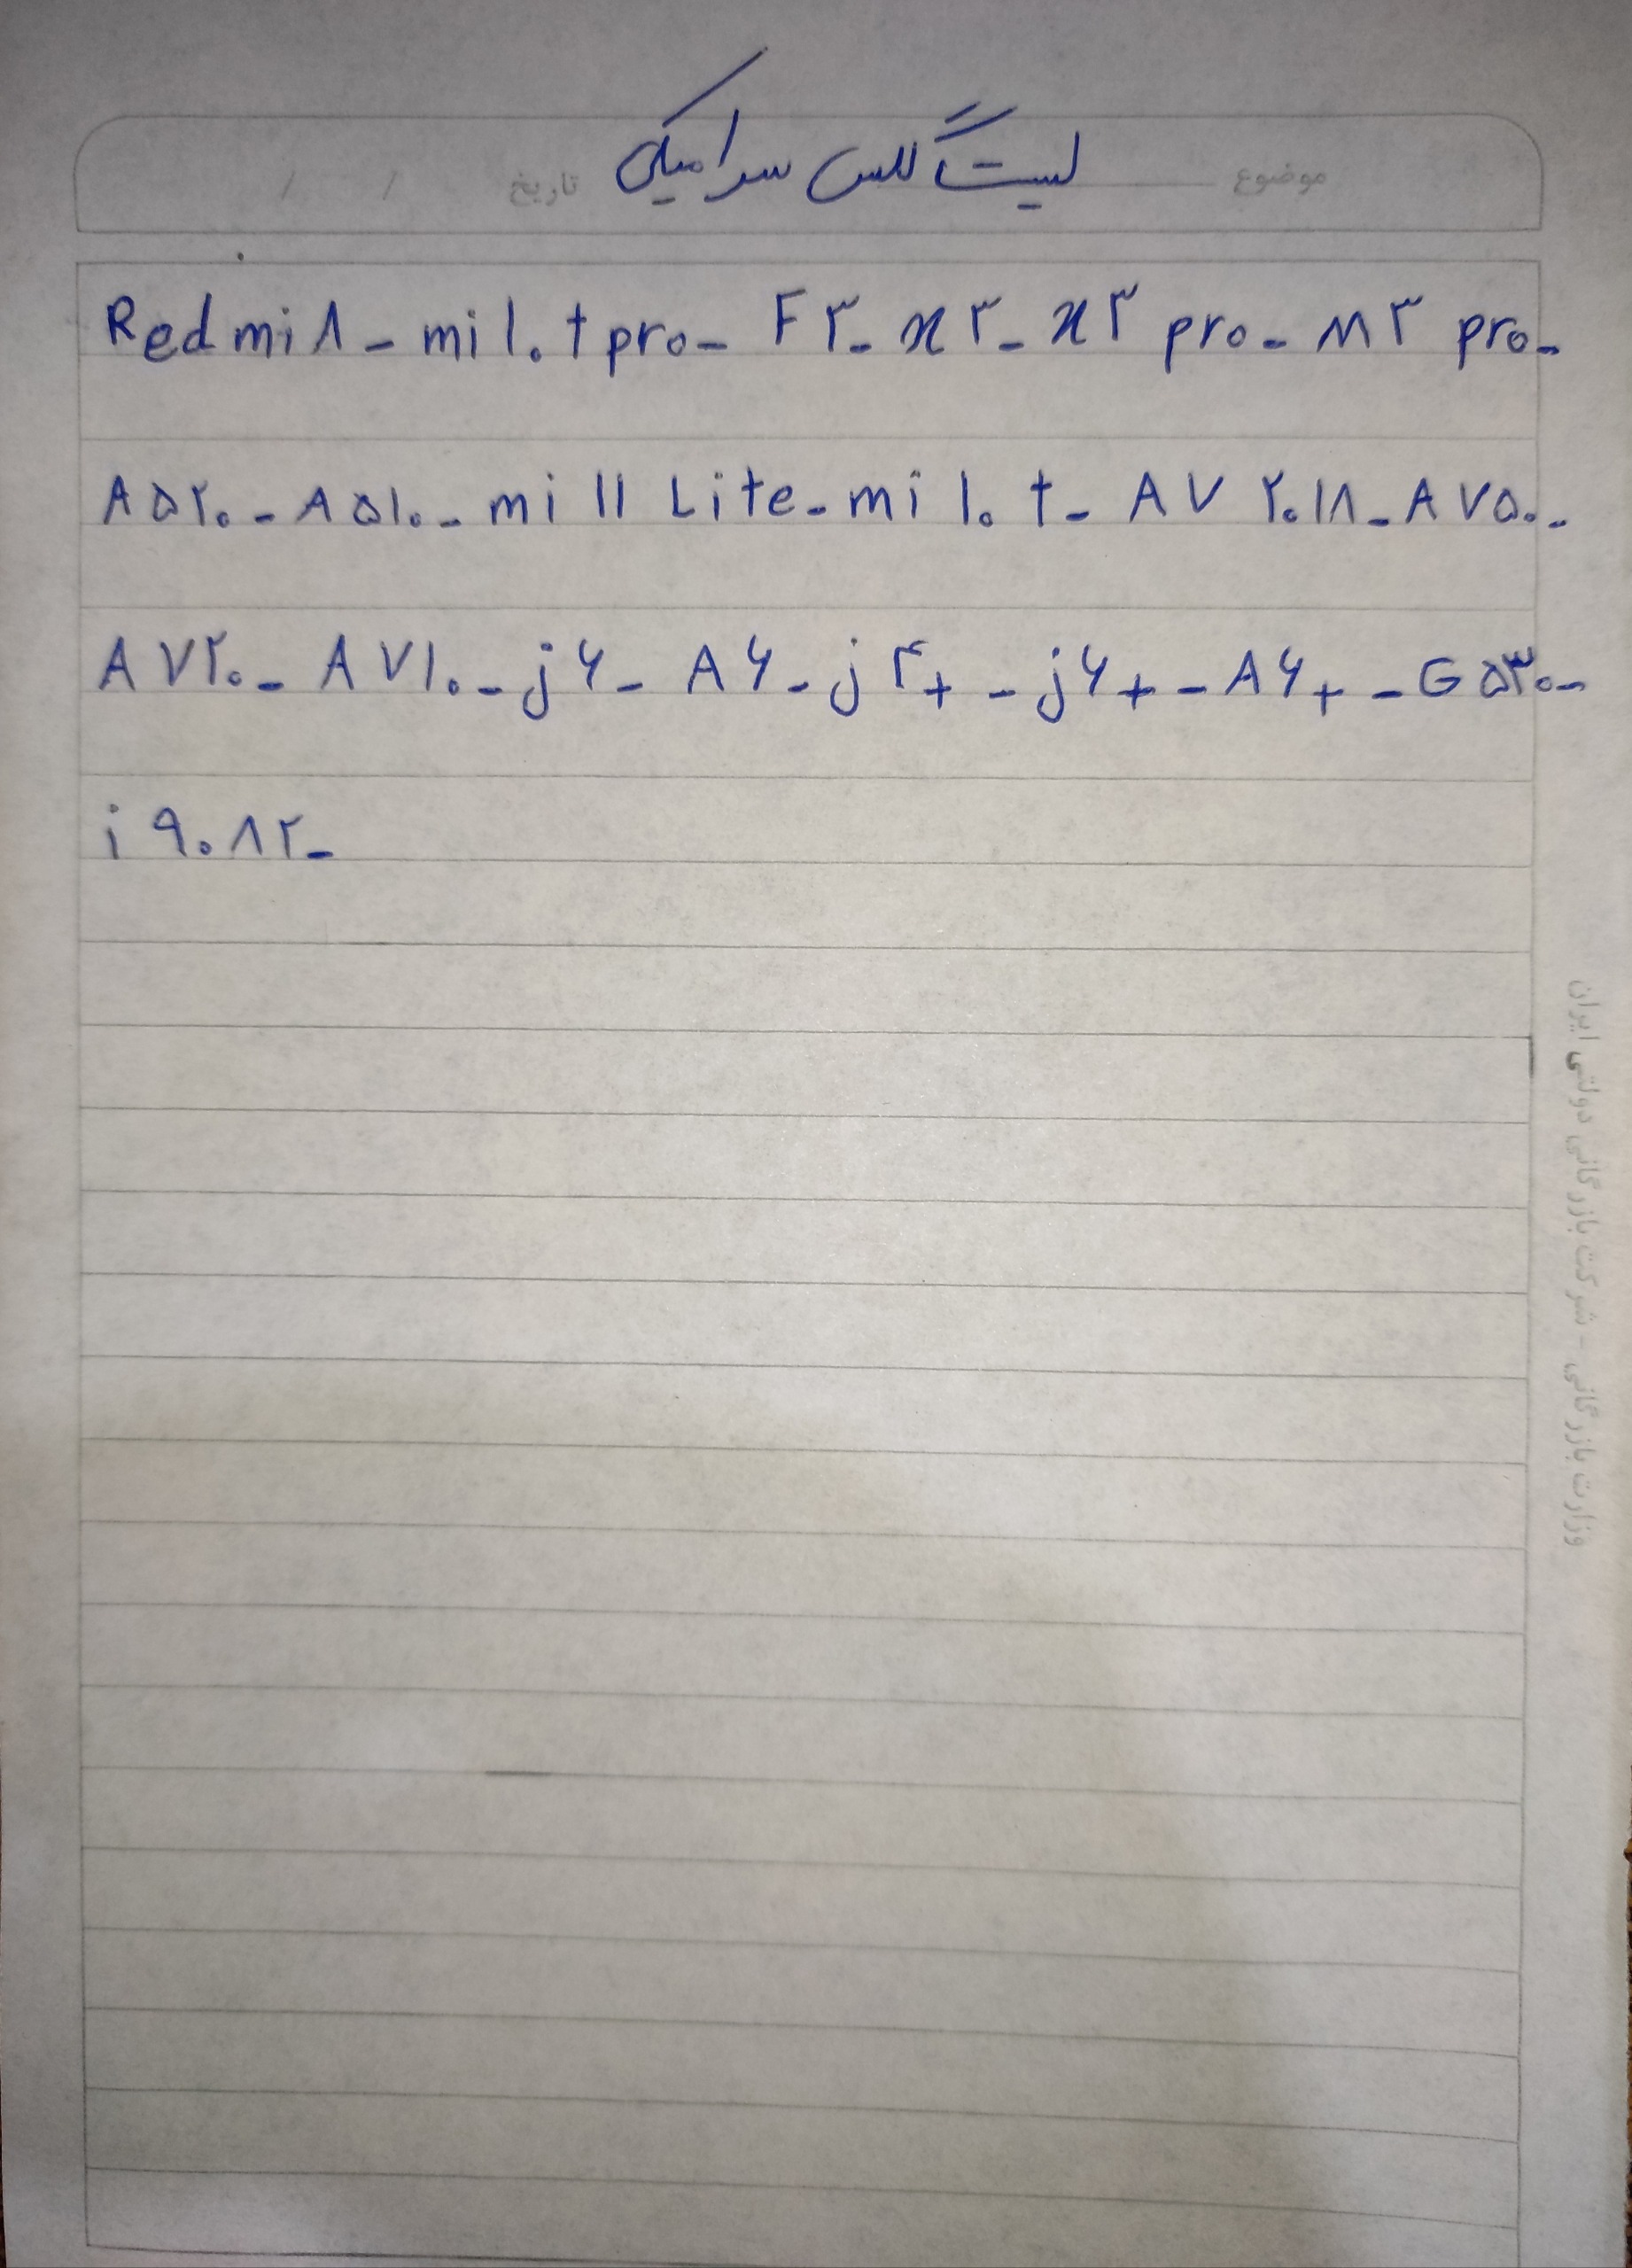 لیست گلس سرامیکی
موضوع تاریخ / /
Redmi ۸ - mi ۱۰ t pro - F۳ - x۳ - x۳ pro - M۳ pro -
A۵۲۰ - A۵۱۰ - mi ۱۱ Lite - mi ۱۰ t - A۷ ۲۰۱۸ - A۷۵۰ -
A۷۲۰ - A۷۱۰ - j۶ - A۶ - j۴+ - j۶+ - A۶+ - G۵۳۰ -
i ۹۰۸۲ -
وزارت بازرگانی - شرکت بازرگانی دولتی ایران